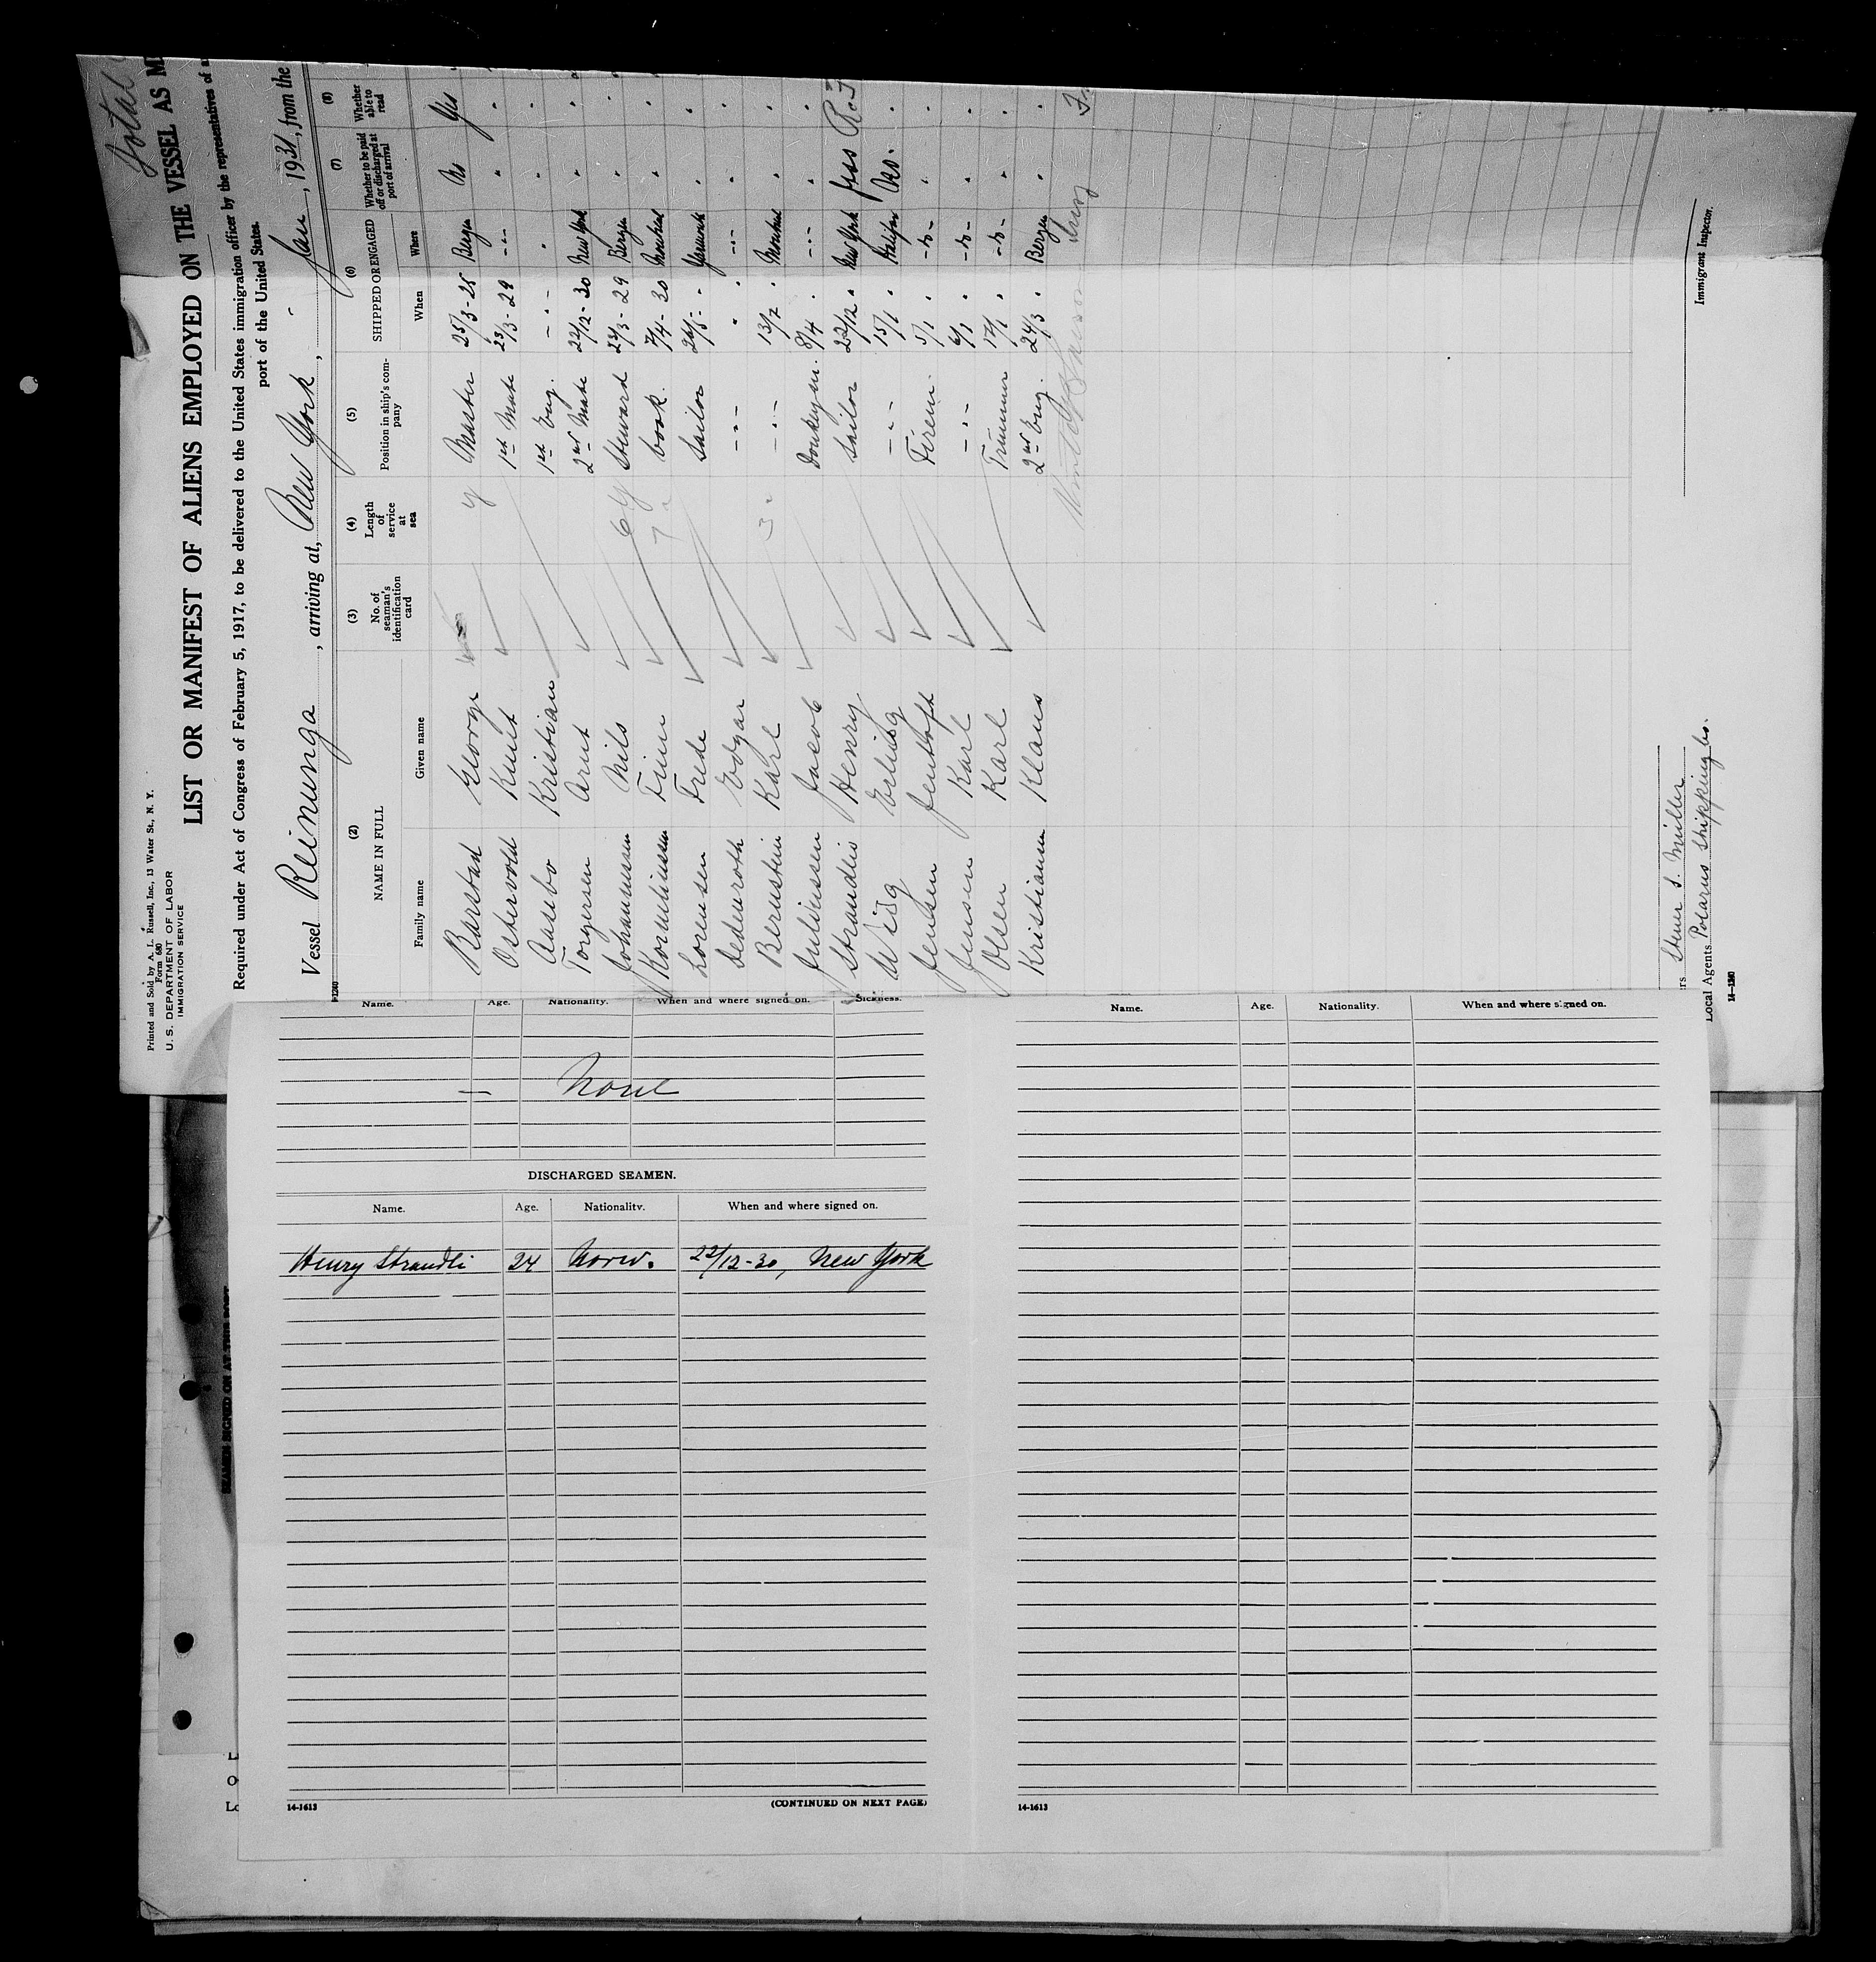 Total
Printed and Sold by A. L. Russell, Inc., 13 Water St., N. Y.
Form 680
U. S. DEPARTMENT OF LABOR
IMMIGRATION SERVICE
LIST OR MANIFEST OF ALIENS EMPLOYED ON THE VESSEL AS M
Required under Act of Congress of February 5, 1917, to be delivered to the United States immigration officer by the representatives of a
port of the United States.
Vessel Reinunga, arriving at, New York, - Jan, 1931, from the
(2) (3) (4) (5) (6) (7) (8)
NAME IN FULL No. of seaman's identification card Length of service at sea Position in ship's company SHIPPED OR ENGAGED Whether to be paid off or discharged at port of arrival Whether able to read
Family name Given name When Where
Barstad George y Master 25/3-28 Bergen No Yes
Ostervold Knut 1st Mate 23/3-29 -"- " "
Aasebo Kristian 1st Eng. -"- " " "
Torgersen Arnt 2nd Mate 22/12-30 New York " "
Johannessen Nils 6 y Steward 23/3-29 Bergen " "
Korneliussen Finn 7 " Cook 7/4-30 Montreal " "
Lorensen Frede Sailor 26/5 " Yarmouth " "
Dedenroth Edgar -"- " -"- " "
Bernstein Karl 3 " -"- 13/7 " Montreal " "
Juliussen Jacob Donkeym. 8/4 " -"- " "
Strandlie Henry Sailor 22/12 " New York yes
Wiig Erling -"- 15/1 " Halifax No. "
Jensen Jentoft Firem. 5/1 " -"- " "
Jensen Karl -"- 6/1 " -"- " "
Olsen Karl Trimmer 17/1 " -"- " "
Kristiansen Klaus 2nd Eng. 24/3 " Bergen " "
Immigrant Inspector.
rs Stener S. Müller
Local Agents Polarus Shipping Co.
14-1240
Name. Age. Nationality. When and where signed on. Sickness.
— None
DISCHARGED SEAMEN.
Name. Age. Nationality. When and where signed on.
Henry Strandli 24 Norw. 22/12-30, New York
14-1613 (CONTINUED ON NEXT PAGE)
Name. Age. Nationality. When and where signed on.
14-1613